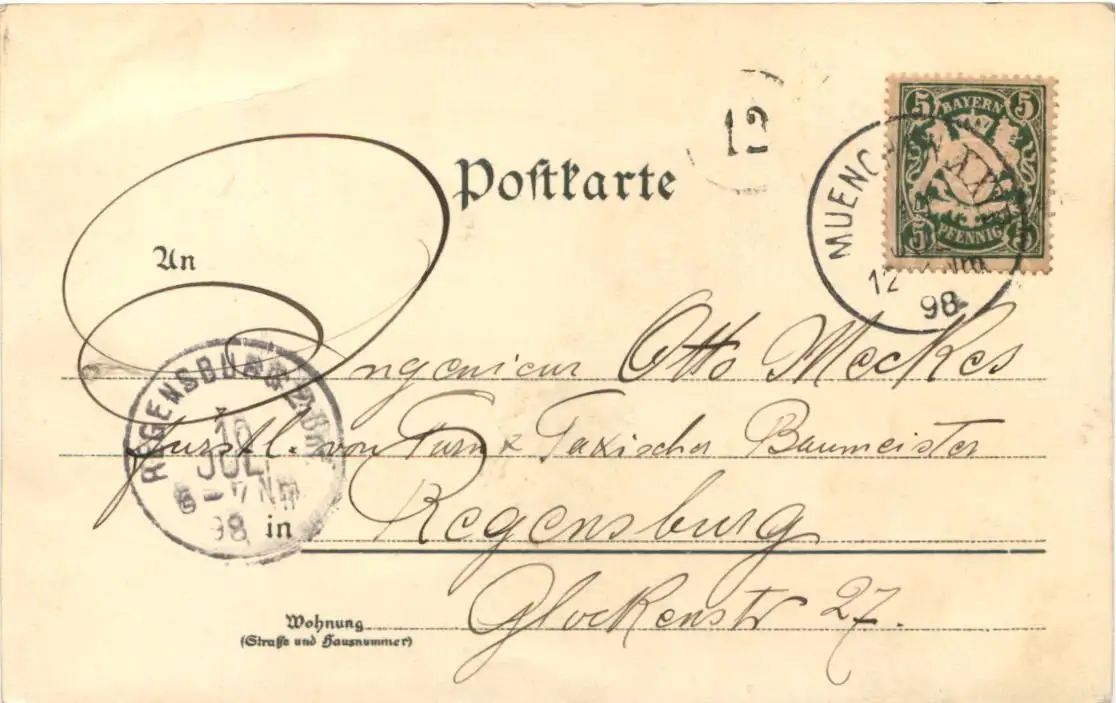 12
5 BAYERN 5
5 PFENNIG 5
MUENCHEN XX
12
Nm
98
Postkarte
An
Ingenieur Otto Meckes
Fürstl. von Turn & Taxischer Baumeister
in Regensburg
Wohnung
(Straße und Hausnummer)
Glockenstr 27.
REGENSBURG 2. Bhf.
10
JUL
6-7 Nm
98